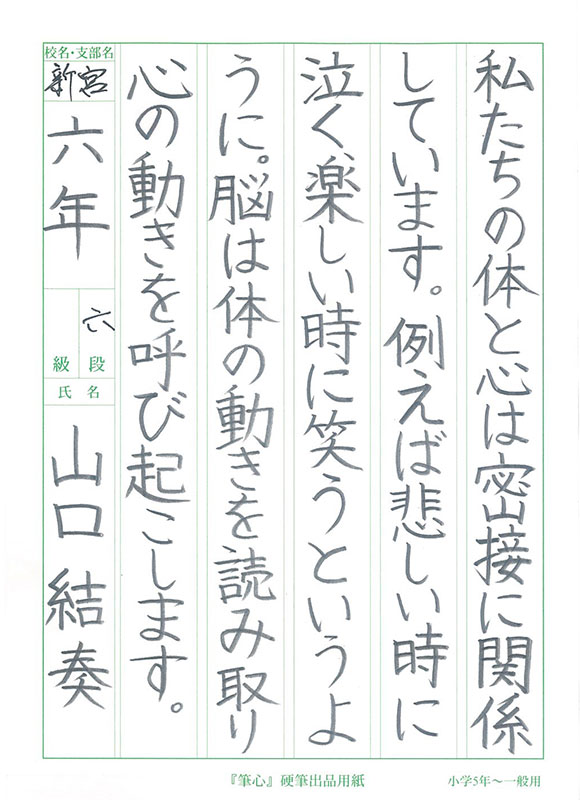 私たちの体と心は密接に関係
しています。例えば悲しい時に
泣く、楽しい時に笑うというよ
うに。脳は体の動きを読み取り
心の動きを呼び起こします。
校名・支部名
新宮
六年
六
段
級
氏名
山口結奏
『筆心』硬筆出品用紙
小学5年〜一般用